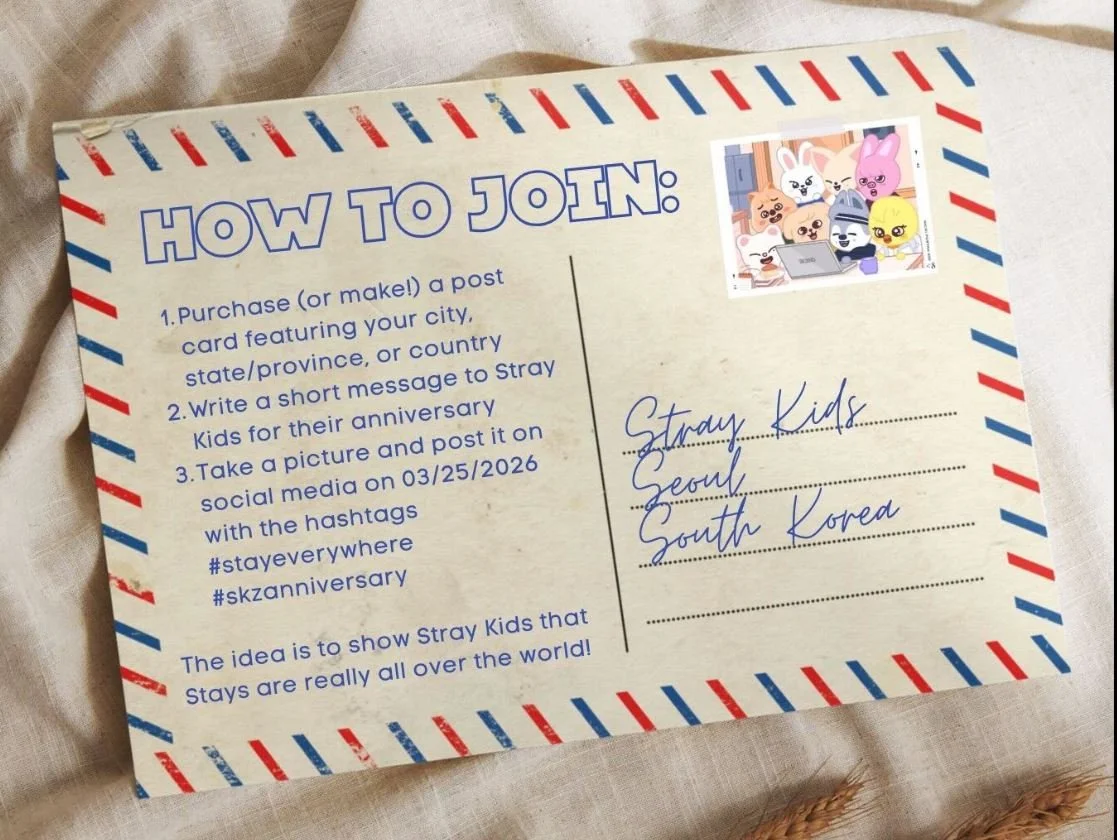 HOW TO JOIN:
1. Purchase (or make!) a post
card featuring your city,
state/province, or country
2. Write a short message to Stray
Kids for their anniversary
3. Take a picture and post it on
social media on 03/25/2026
with the hashtags
#stayeverywhere
#skzanniversary
The idea is to show Stray Kids that
Stays are really all over the world!
Stray Kids
Seoul
South Korea